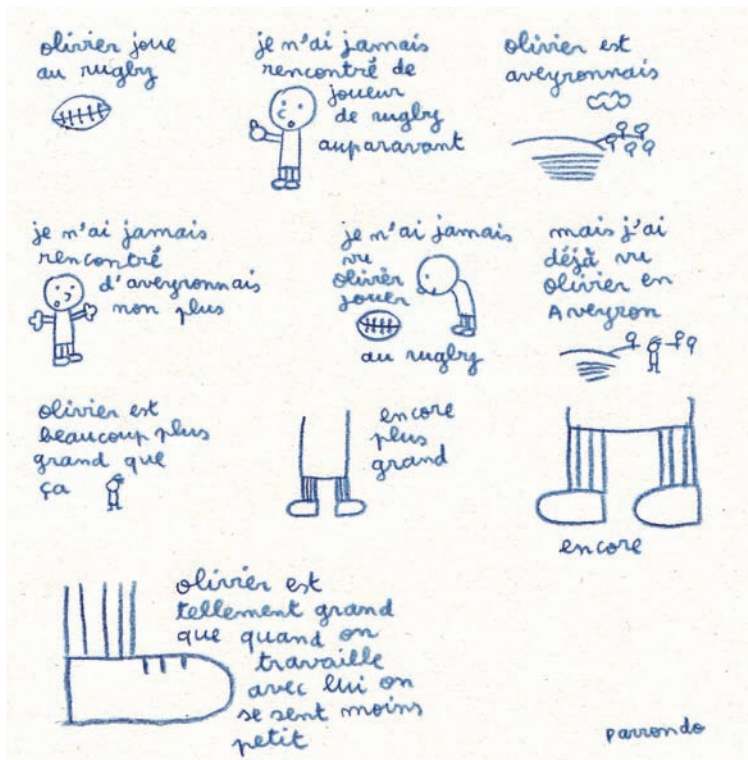 olivier joue
au rugby
je n'ai jamais
rencontré de
joueur
de rugby
auparavant
olivier est
aveyronnais
je n'ai jamais
rencontré
d'aveyronnais
non plus
je n'ai jamais
vu
olivier
jouer
au rugby
mais j'ai
déjà vu
olivier en
Aveyron
olivier est
beaucoup plus
grand que
ça
encore
plus
grand
encore
olivier est
tellement grand
que quand on
travaille
avec lui on
se sent moins
petit
parrondo